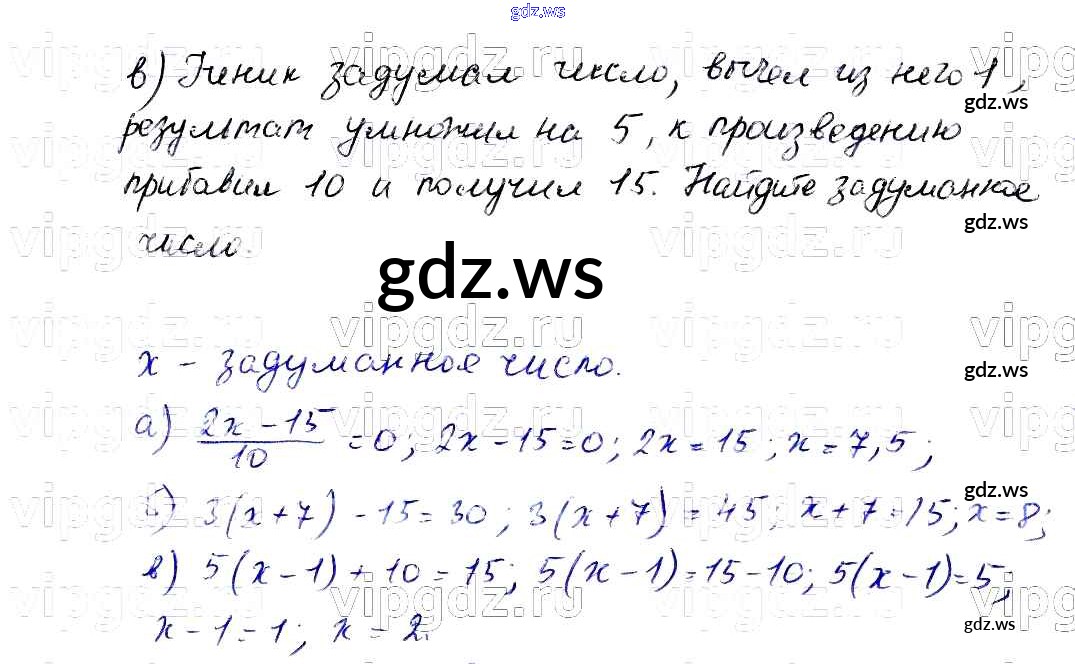 gdz.ws
в) Ученик задумал число, вычел из него 1,
gdz.ws
результат умножил на 5, к произведению
прибавил 10 и получил 15. Найдите задуманное
gdz.ws
число.
gdz.ws
x - задуманное число.
gdz.ws
а) (2x - 15)/10 = 0; 2x - 15 = 0; 2x = 15; x = 7,5;
gdz.ws
б) 3(x+7) - 15 = 30; 3(x+7) = 45; x + 7 = 15; x = 8;
в) 5(x-1) + 10 = 15; 5(x-1) = 15 - 10; 5(x-1) = 5;
x - 1 = 1; x = 2.
gdz.ws
vipgdz.ru vipgdz.ru vipgdz.ru